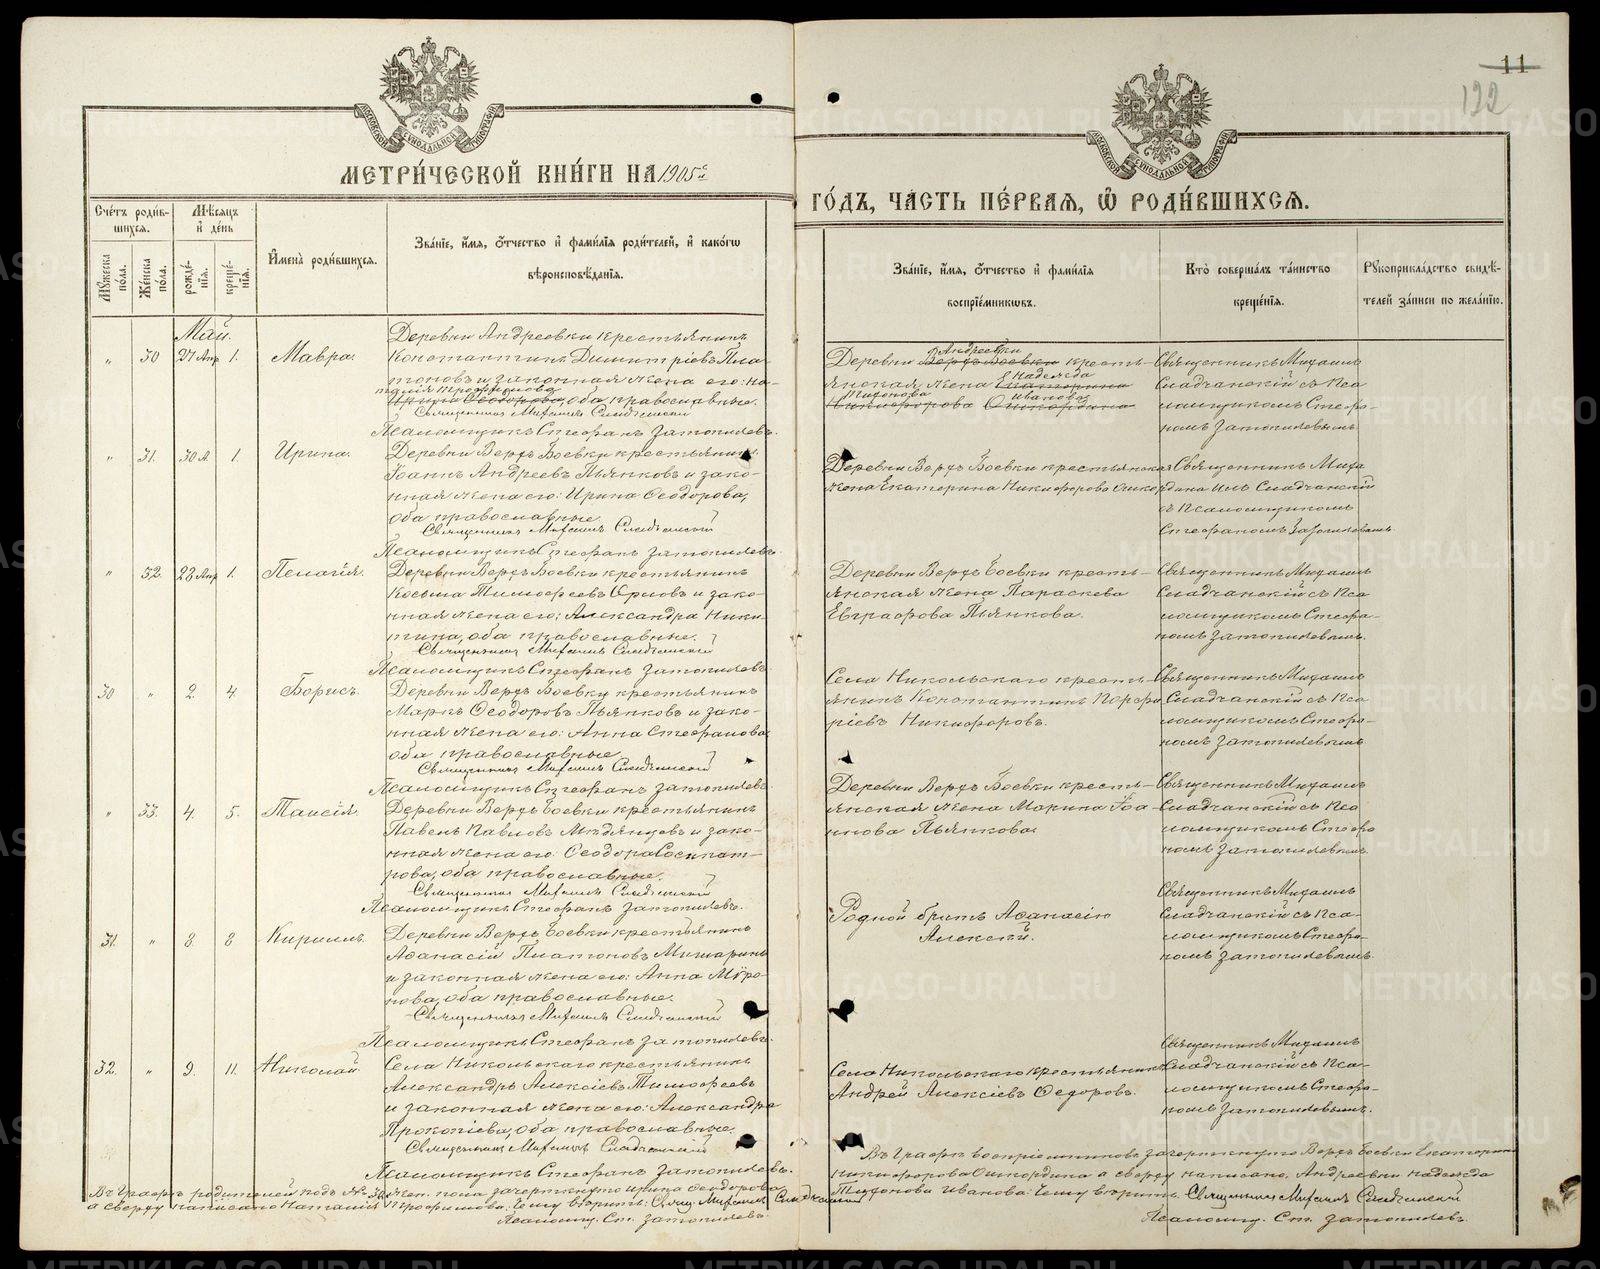 11
122
МОСКОВСКОЙ СѴНОДАЛЬНОЙ ТИПОГРАФІИ
МОСКОВСКОЙ СѴНОДАЛЬНОЙ ТИПОГРАФІИ
МЕТРИ́ЧЕСКОЙ КНИ́ГИ НА 1905 г.
ГО́ДЪ, ЧА́СТЬ ПЕ́РВАЯ, Ѽ РОДИ́ВШИХСѦ.
Сче́тъ роди́в-
шихся.
Мѣ́сяцъ
и҆ де́нь
Мꙋ́жеска по́ла.
Же́нска по́ла.
рожде́-
нїя.
креще́-
нїя.
И҆мена̀ роди́вшихся.
Зва́нїе, и҆́мя, ѻ҆́тчество и҆ фами́лїя роди́телей, и҆ како́гѡ
вѣроисповѣ́данїя.
Зва́нїе, и҆́мя, ѻ҆́тчество и҆ фами́лїя
воспрїе́мникѡвъ.
Кто̀ соверша́лъ та́инство
креще́нїя.
Рꙋкоприкла́дство свидѣ́-
телей за́писи по жела́нїю.
Май.
" 30 27 Апр 1. Мавра.
Деревни Андреевки крестьянинъ
Константинъ Димитріевъ Пла-
тоновъ и законная жена его: На-
талія Трофимова
Ирина Ѳеодорова, оба православные.
Священникъ Михаилъ Сладчанскій
Псаломщикъ Стефанъ Затопляевъ.
Андреевки
Деревни Верхъ Боевки кресть-
Надежда
янская жена Екатерина
Тихонова Иванова
Никифорова Ошкордина
Священникъ Михаилъ
Сладчанскій съ Пса
ломщикомъ Стефа-
номъ Затопляевымъ
" 31. 30 А. 1. Ирина.
Деревни Верхъ Боевки крестьянинъ
Іоаннъ Андреевъ Пьянковъ и зако-
нная жена его: Ирина Ѳеодорова,
оба православные.
Священникъ Михаилъ Сладчанскій
Псаломщикъ Стефанъ Затопляевъ.
Деревни Верхъ Боевки крестьянская
жена Екатерина Никифорова Ошкордина
Священникъ Миха
илъ Сладчанскій
съ Псаломщикомъ
Стефаномъ Затопляевымъ
" 32. 28 Апр 1. Пелагія.
Деревни Верхъ Боевки крестьянинъ
Косьма Тимофеевъ Орловъ и зако-
нная жена его: Александра Ники-
тина, оба православные.
Священникъ Михаилъ Сладчанскій
Псаломщикъ Стефанъ Затопляевъ.
Деревни Верхъ Боевки кресть-
янская жена Параскева
Евграфова Пьянкова.
Священникъ Михаилъ
Сладчанскій съ Пса
ломщикомъ Стефа-
номъ Затопляевымъ.
30 " 2. 4. Борисъ.
Деревни Верхъ Боевки крестьянинъ
Маркъ Ѳеодоровъ Пьянковъ и зако-
нная жена его: Анна Стефанова,
оба православные
Священникъ Михаилъ Сладчанскій
Псаломщикъ Стефанъ Затопляевъ.
Села Никольскаго кресть-
янинъ Константинъ Порфи
ріевъ Никифоровъ.
Священникъ Михаилъ
Сладчанскій съ Пса
ломщикомъ Стефа-
номъ Затопляевымъ
" 33. 4. 5. Таисія.
Деревни Верхъ Боевки крестьянинъ
Павелъ Павловъ Мѣдянцевъ и зако-
нная жена его: Ѳеодора Сосипат-
рова, оба православные.
Священникъ Михаилъ Сладчанскій
Псаломщикъ Стефанъ Затопляевъ.
Деревни Верхъ Боевки кресть-
янская жена Марина Іоа-
ннова Пьянкова
Священникъ Михаилъ
Сладчанскій съ Пса
ломщикомъ Стефа
номъ Затопляевымъ.
31. " 8. 8 Кириллъ.
Деревни Верхъ Боевки крестьянинъ
Аѳанасій Платоновъ Мишаринъ
и законная жена его: Анна Мѵро-
нова, оба православные.
Священникъ Михаилъ Сладчанскій
Псаломщикъ Стефанъ Затопляевъ.
Родной братъ Аѳанасію
Алексѣй.
Священникъ Михаилъ
Сладчанскій съ Пса-
ломщикомъ Стефа-
номъ Затопляевымъ.
32. " 9. 11. Николай.
Села Никольскаго крестьянинъ
Александръ Алексіевъ Тимофеевъ
и законная жена его: Александра
Прокопіева, оба православные.
Священникъ Михаилъ Сладчанскій
Псаломщикъ Стефанъ Затопляевъ.
Села Никольскаго крестьянинъ
Андрей Алексіевъ Ѳедоровъ.
Священникъ Михаилъ
Сладчанскій съ Пса-
ломщикомъ Стефа-
номъ Затопляевымъ.
Въ графѣ родителей подъ № 30 жен. пола зачеркнуто Ирина Ѳеодорова
а сверху написано Наталія Трофимова, чему вѣрить: Свящ. Михаилъ Сладчанскій
Псаломщ. Ст. Затопляевъ.
Въ графѣ воспріемниковъ зачеркнуто Верхъ Боевки Екатерина
Никифорова Ошкордина а сверху написано, Андреевки Надежда
Тихонова Иванова: чему вѣрить. Священникъ Михаилъ Сладчанскій
Псаломщ. Ст. Затопляевъ.
METRIKI.GASO-URAL.RU